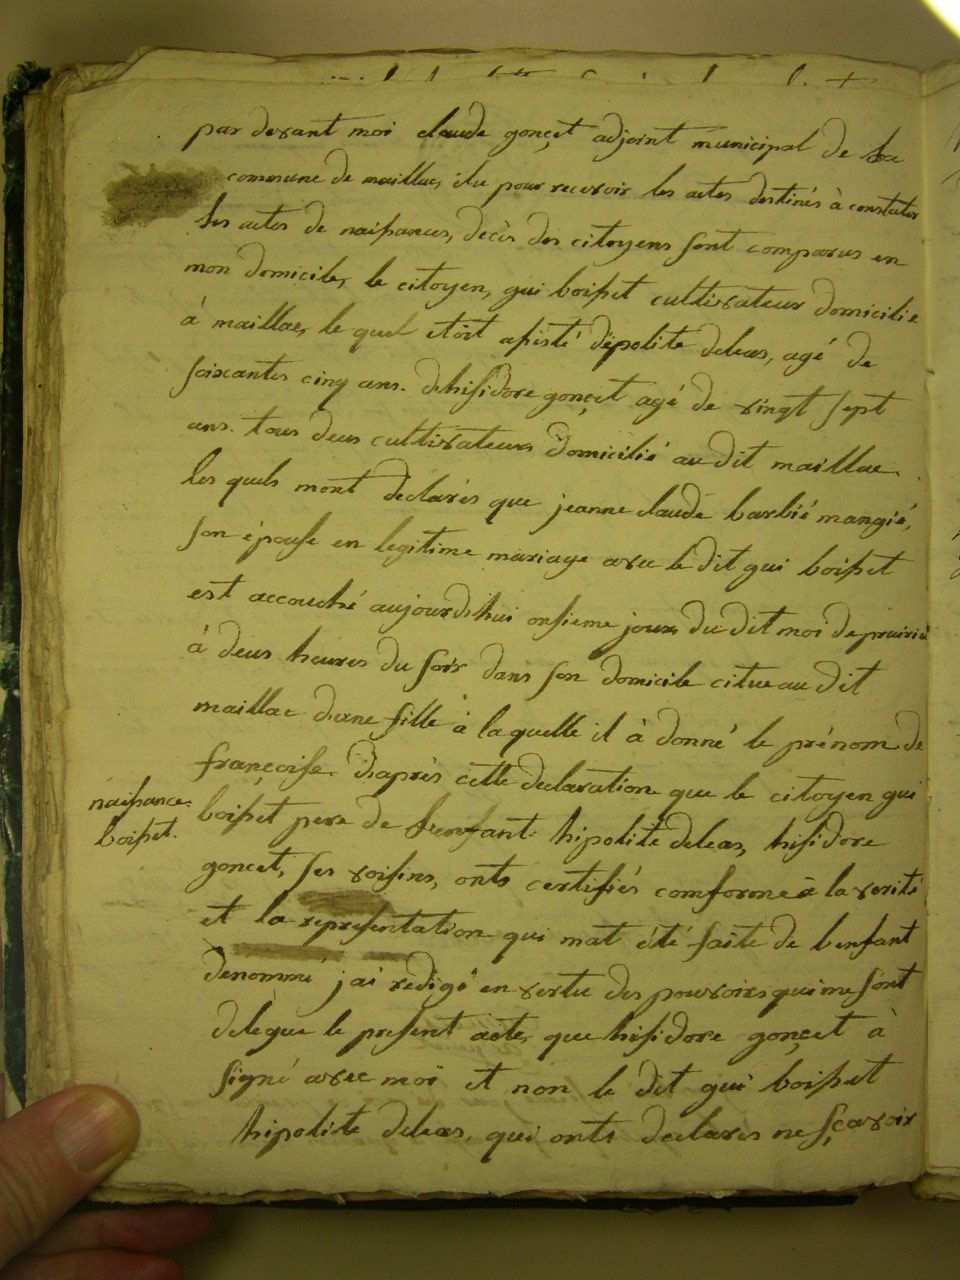 par devant moi claude gonçet adjoint municipal de la
commune de maillac, élu pour recevoir les actes destinés à constater
les actes de naissances, decès des citoyens sont comparus en
mon domicile, le citoyen, gui boisset cultivateur domicilié
à maillac, le quel etoit assisté d'ipolite deleas, agé de
soixantes cinq ans. dehisidore gonçet agé de vingt sept
ans. tous deus cultivateurs domicilié au dit maillac.
les quels mont déclarés que jeanne claude barbié mangié,
son épouse en legitime mariage avec le dit gui boisset
est accouché aujourdhui onsieme jours du dit moi de prairial
à deus heures du soir dans son domicile citue au dit
maillac dune fille à la quelle il à donné le prénom de
françoise. daprès cette declaration que le citoyen gui
naissance.
boisset.
boisset pere de lenfant. hipolite deleas, hisidore
goncet, ses voisins, onts certifiés comforme à la verité
et la representation qui mat été faite de lenfant
denommé j'ai redigé en vertu des pouvoirs qui me sont
delegue le present acte, que hisidore gonçet à
signé avec moi et non le dit gui boisset
hipolite deleas, qui onts declares ne sçavoir